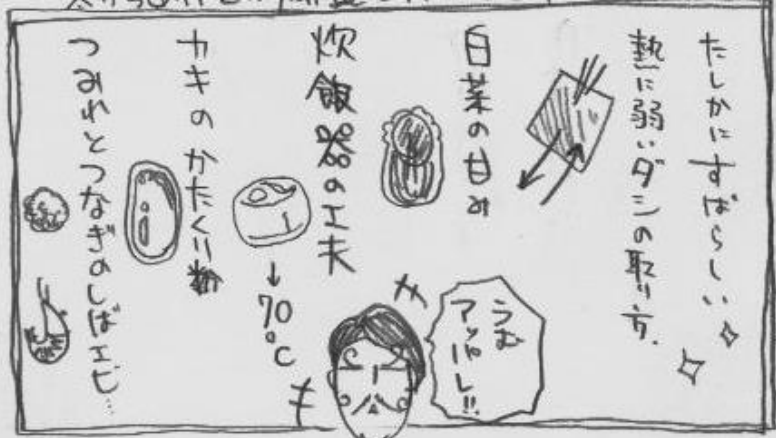 たしかにすばらしい
熱に弱いダシの取り方.
白菜の甘み
炊飯器の工夫
↓70℃
カキのかたくり粉
つみれとつなぎのしばエビ…
うむ
アッパレ!!